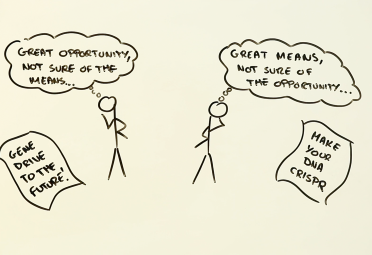 GREAT OPPORTUNITY,
NOT SURE OF THE
MEANS...
GREAT MEANS,
NOT SURE OF
THE OPPORTUNITY...
GENE
DRIVE
TO THE
FUTURE!
MAKE
YOUR
DNA
CRISPR